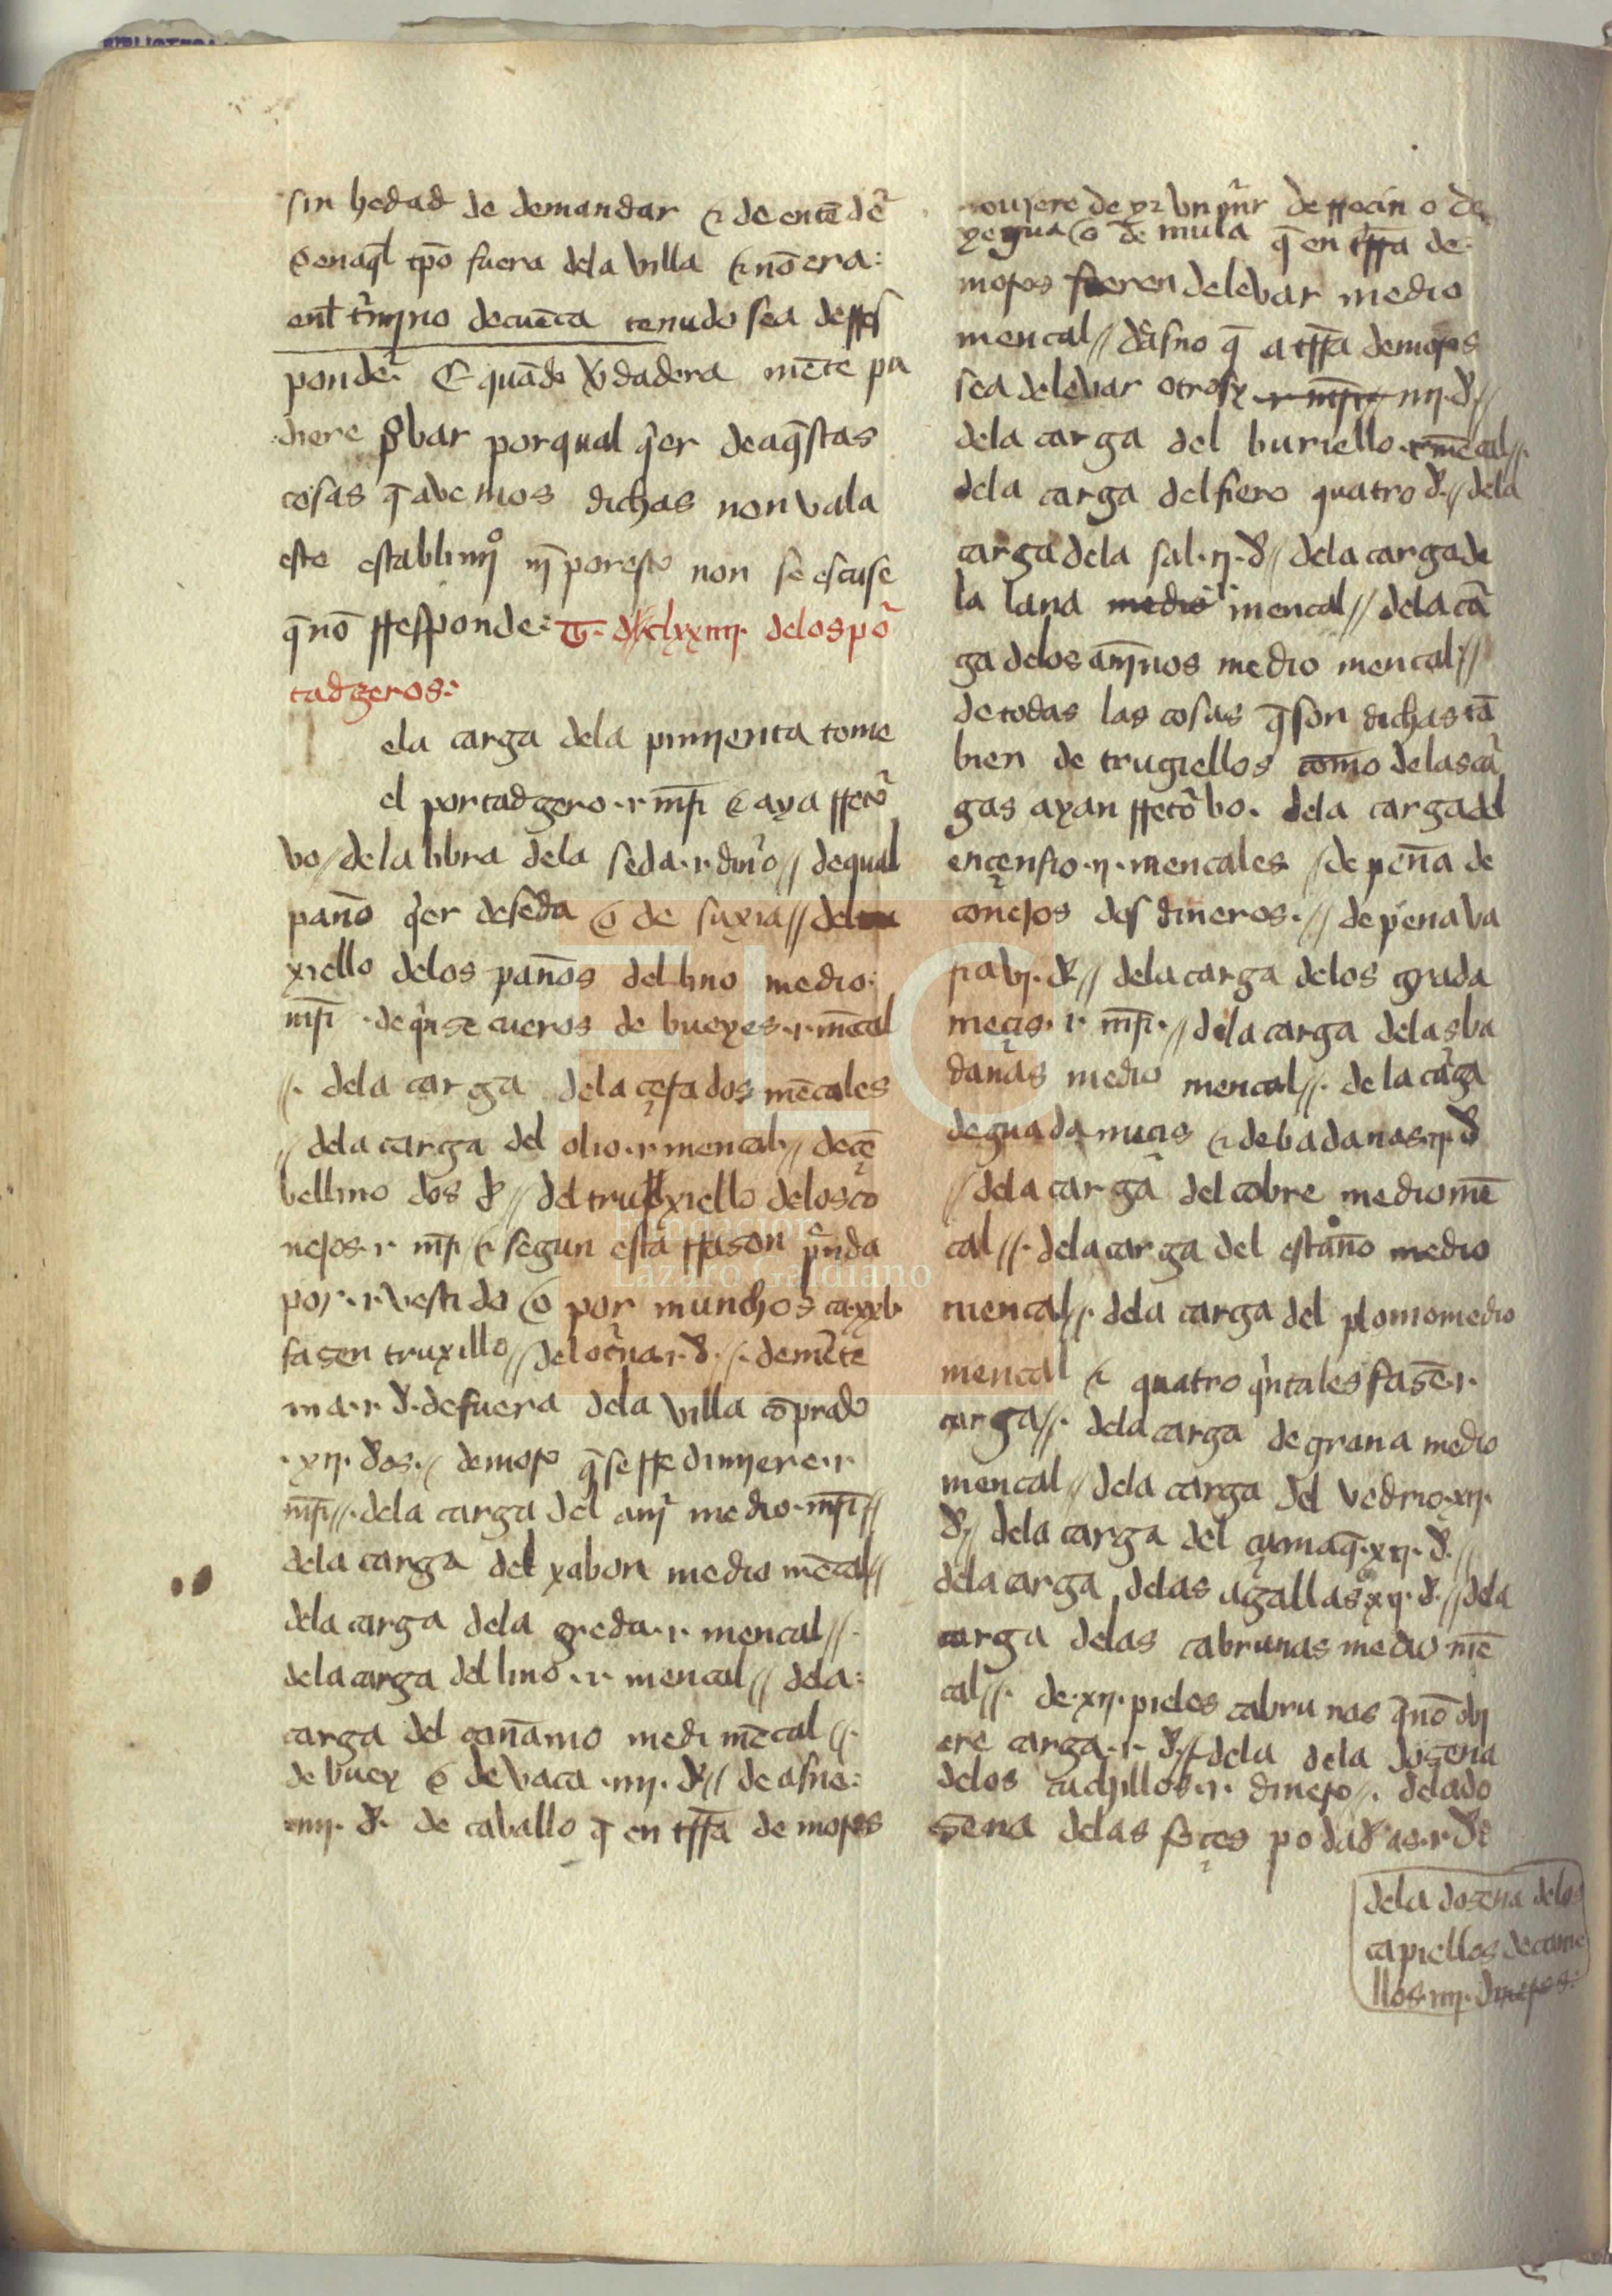 sin hedad de demandar & de entēdẽ
o enaq̃l tp̄o fuera dela villa & nō era:
enl t̃mjno decuēca tenudo sea deRes
ponđe. E quādo v̾dadera mēte pu
diere p̃var porqual q̃er deaq̃stas
cosas q̄ avemos dichas non vala
este establimjº nj̄ por esto non se escuse
q̄ nō Responde: T. dclxxiiij. delos por̃
tadgeros:
ela carga dela pimjenta tome
el portadgero .i. mr̄i & aya Retor̃
vo // dela libra dela seda .i. din̾o // dequal
pan̄o q̃er deseda o de suria // del tru
xiello delos pan̄os del lino medio:
mr̄i . de q̃nse cueros de bueyes .i. mēcal
// dela carga dela çera dos mēcales
// dela carga del olio .i. mencal // deçe
bellino dos d̾ // del truxiello delos co
nejos .i. mr̄i & segun esta Rason p̃nda
por .i. vestido o por munchos ca .xxv.
fasen truxillo //
ma .i. d̾. de fuera dela villa cōprado
.xij. d̾os. // de moro q̄ se Redimjere .i.
mr̄i // dela carga del anjr̃ medio mr̄i //
dela carga del xabon medio mēcal //
dela carga dela greda .i. mencal //
dela carga del lino .i. mencal // dela:
carga del can̄amo medi mēcal //
de buey o de vaca .iiij. d̾ // de asno:
iiij. d̾. de caballo q̄ en tr̄Ra de moros
oujere de yr
yegua o de mula q̄ en tr̄Ra de:
moros fueren delevar medio
mencal // d̃asno q̄ a tr̄Ra demoros
sea delevar otrosy iiij. d̾ //
dela carga del buriello .i. mēcal //
dela carga del fiero quatro d̾. // dela
carga dela sal .ij. d̾ // dela carga de
la lana medio mencal // dela cā
ga delos an̄jnos medio mencal //
de todas las cosas q̄ son dichas tā
bien de trugiellos como delas cā
gas ayan Retor̃vo. dela carga del
ençensio .ij. mencales // de pen̄a de
conejos dos dineros. // de pena va
ria vj. d̾ // dela carga delos guada
meçis .i. mr̄i. // dela carga delas ba
danas medio mencal //. de la cārga
de guadamecis & de badanas .ij. d̾
// dela carga del cobre medio mē
cal //. dela carga del estan̄o medio
mencal //. dela carga del plomo medio
mencal & quatro q̃ntales fasē .i.
carga //. dela carga de grana medio
mencal // dela carga del vedrio .xij.
d̾ // dela carga del çumaq̄ .xij. d̾. //
dela carga delas agallas .xij. d̾. // dela
carga delas cabrunas medio mē
cal //. de .xij. pieles cabrunas q̄ nō obj
ere carga .i. d̾ // dela dela dosena
delos cuchillos .i. dinero //. dela do
sena delas foçes podad̾as .i. d̾
dela dosena delos
capiellos de came
llos .iiij. dineros:
Fundación
Lázaro Galdiano